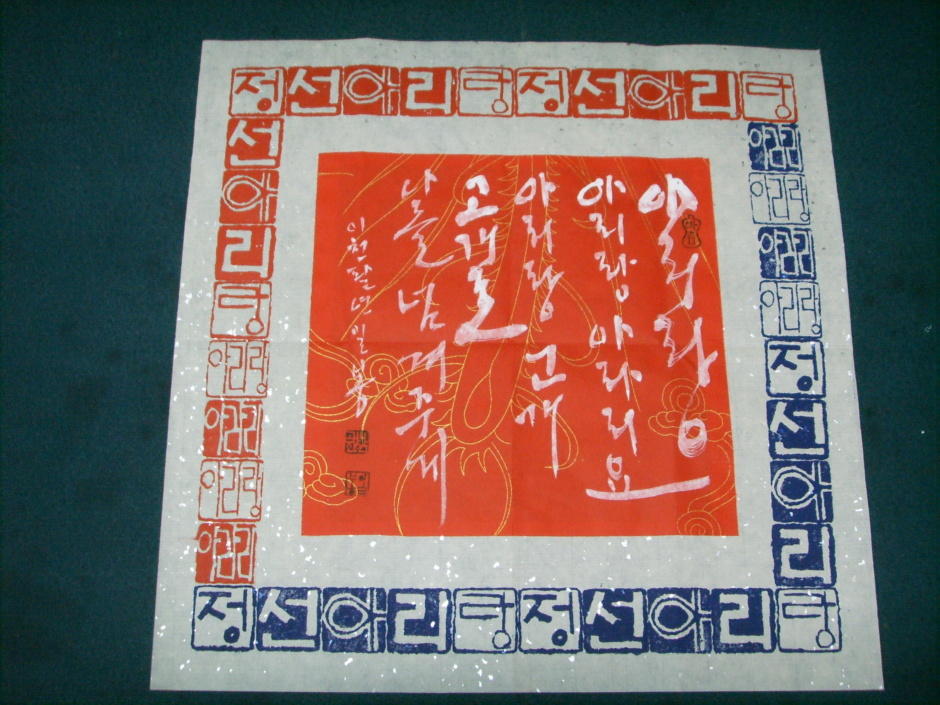 정선아리랑정선아리랑
선아리랑
아리랑
아리랑
아리랑
아리랑
아리랑
아리랑
아리랑
아리랑
정선아리
아리랑
아리랑 아라리요
아리랑 고개
고개로
나를 넘겨주게
이천팔년 일봉
정선아리랑정선아리랑